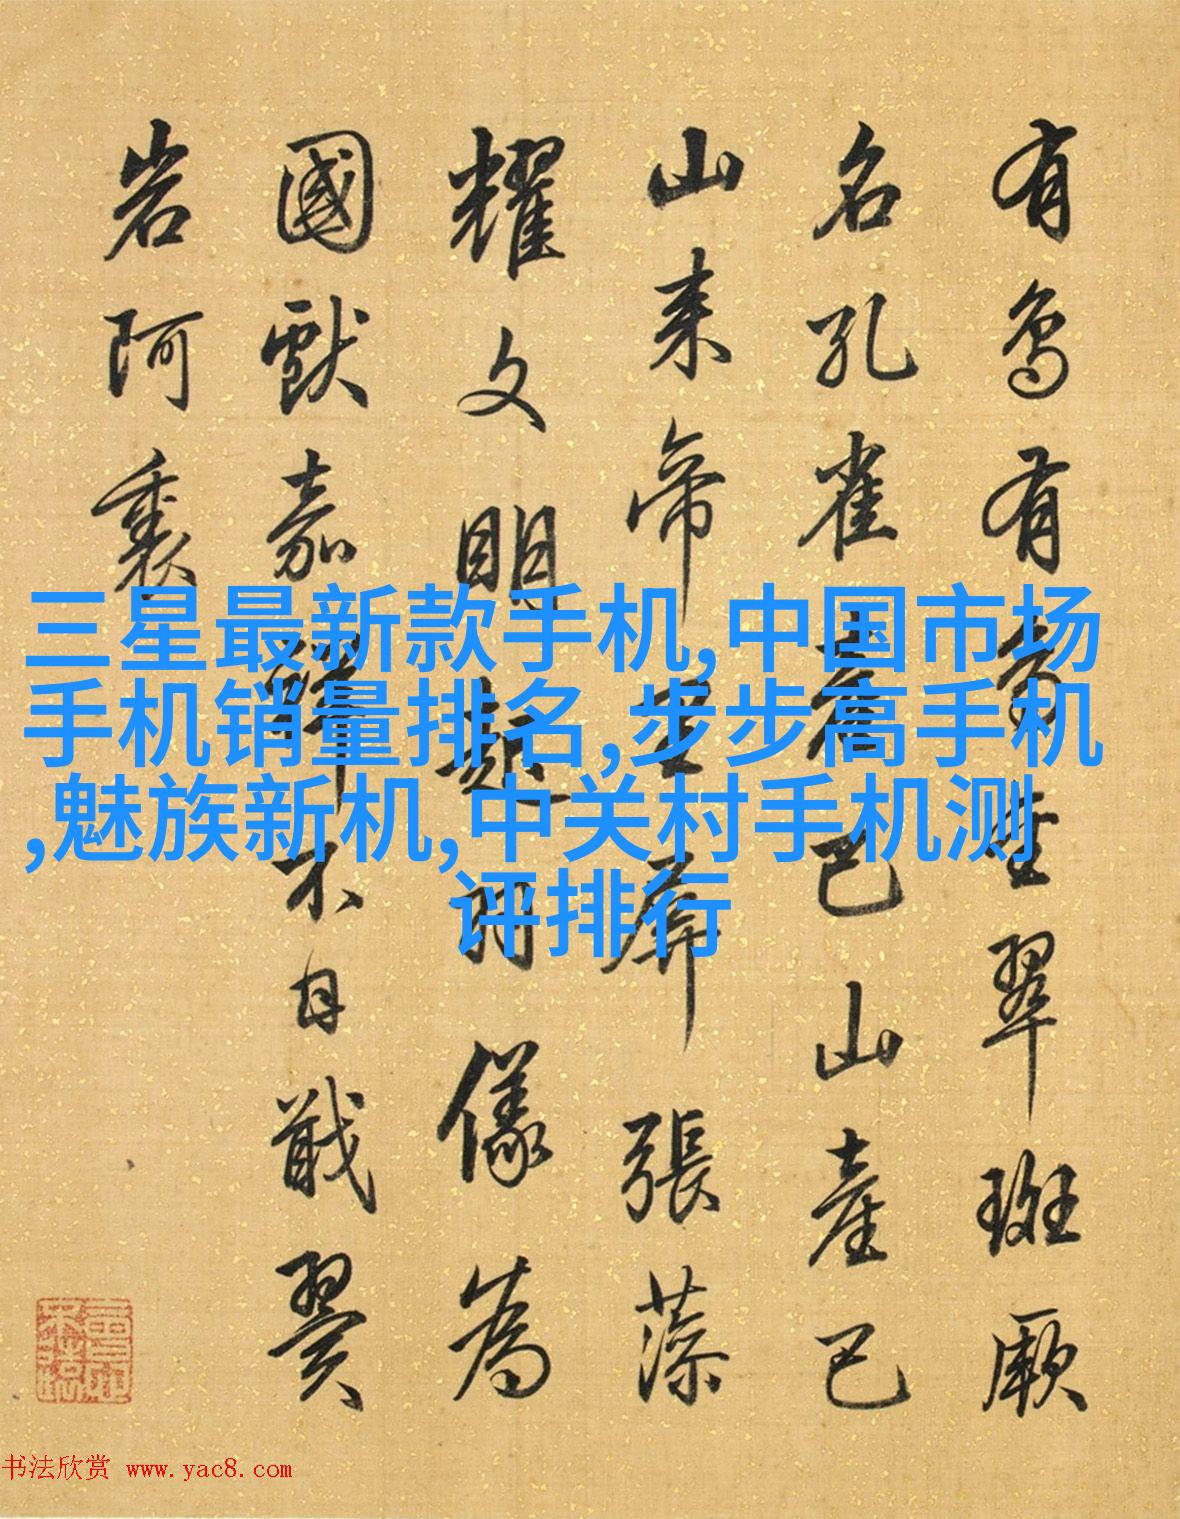 有鳥有鳥生翠斑厥
名孔雀產巴山產巴
山来帝里屏張藻
耀文明起羽儀為
國獻嘉不自戢翼
岩阿裏
三星最新款手机,中国市场
手机销量排名,步步高手机
,魅族新机,中关村手机测
评排行
书法欣赏 www.yac8.com